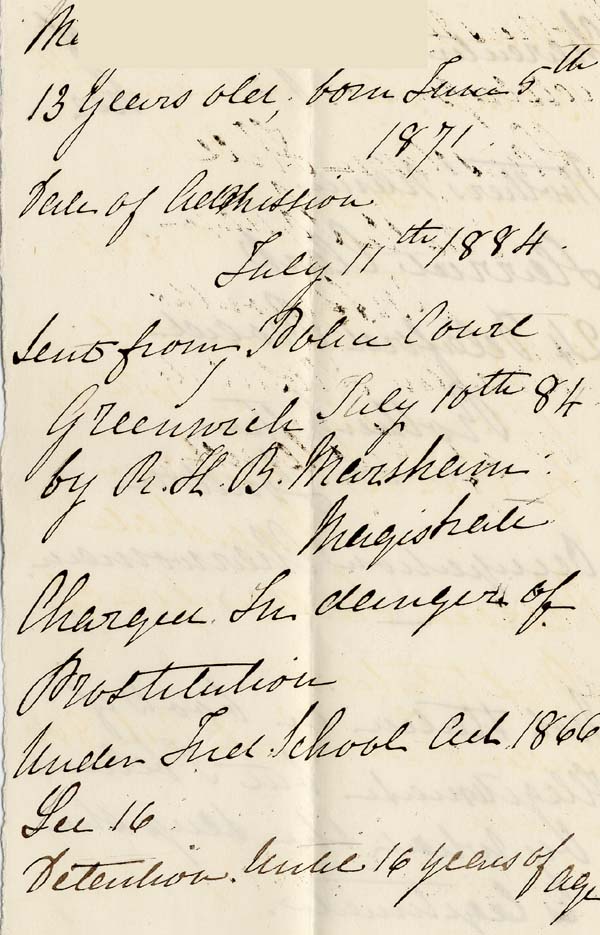 13 Years old, born June 5th
1871.
Date of Admission
July 11th 1884.
Sent from Police Court
Greenwich July 10th 84
by R. H. B. Marsham.
Magistrate
Charged. In danger of
Prostitution
Under Ind School Act 1866
Sec 16
Detention. Until 16 years of age